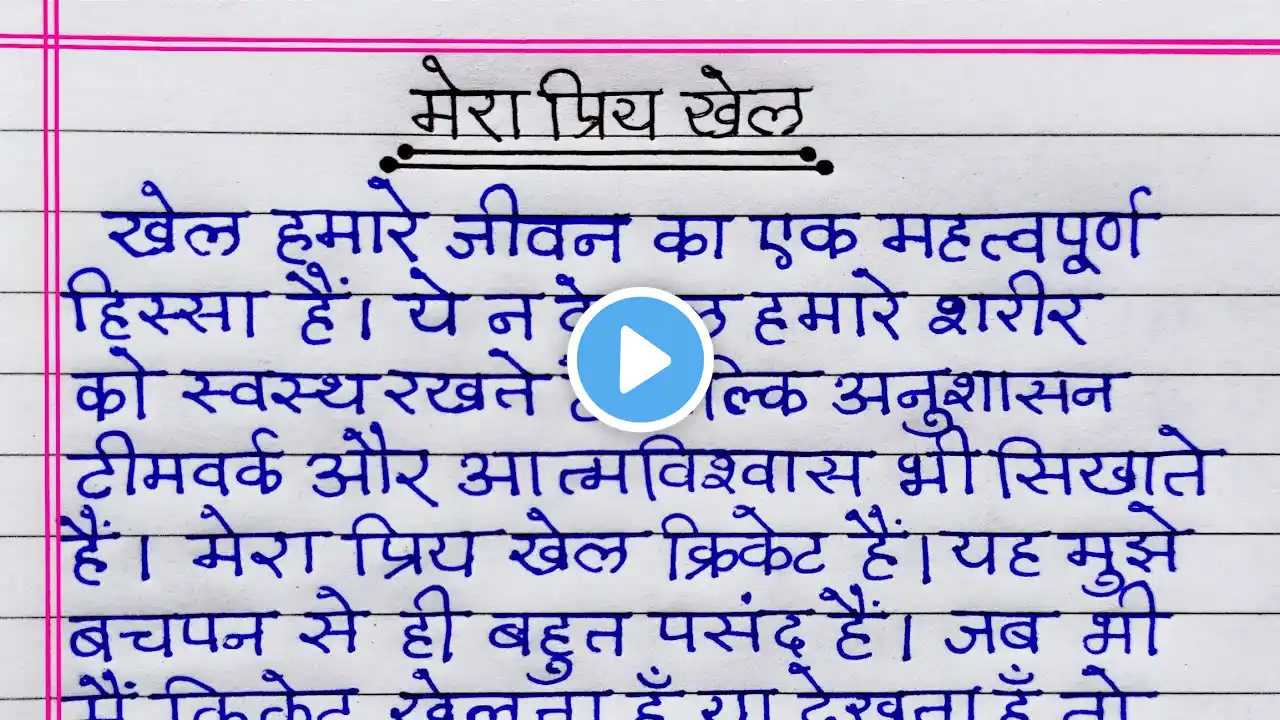 मेरा प्रिय खेल
खेल हमारे जीवन का एक महत्वपूर्ण
हिस्सा हैं। ये न हमारे शरीर
को स्वस्थ रखते अनुशासन
टीमवर्क और आत्मविश्वास भी सिखाते
हैं। मेरा प्रिय खेल क्रिकेट हैं। यह मुझे
बचपन से ही बहुत पसंद हैं। जब भी
मैं क्रिकेट खेलता हूँ या देखता हूँ तो